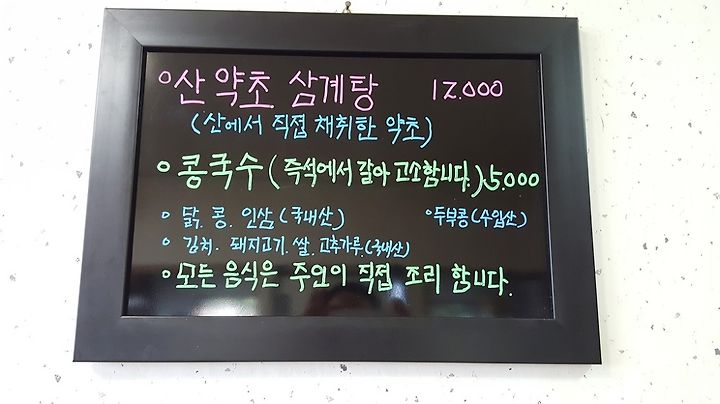 ○산 약초 삼계탕 12.000
(산에서 직접 채취한 약초)
○콩국수 (즉석에서 갈아 고소합니다.) 5.000
○닭. 콩. 인삼 (국내산) ○두부콩 (수입산)
○김치. 돼지고기. 쌀. 고추가루. (국내산)
○모든 음식은 주인이 직접 조리 합니다.